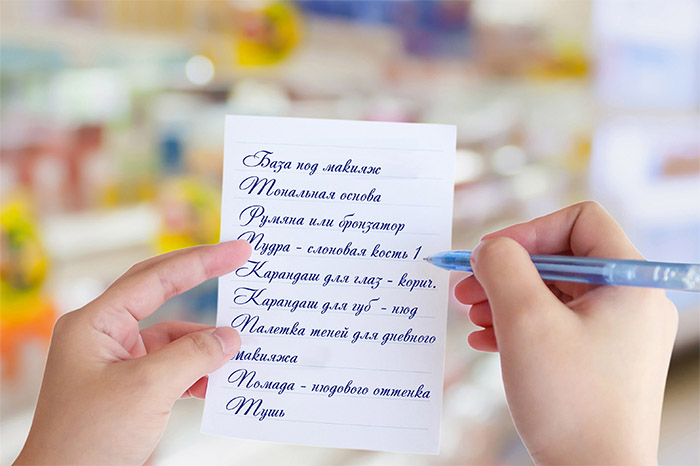 База под макияж
Тональная основа
Румяна или бронзатор
Пудра - слоновая кость 1
Карандаш для глаз - корич.
Карандаш для губ - нюд
Палетка теней для дневного
макияжа
Помада - нюдового оттенка
Тушь